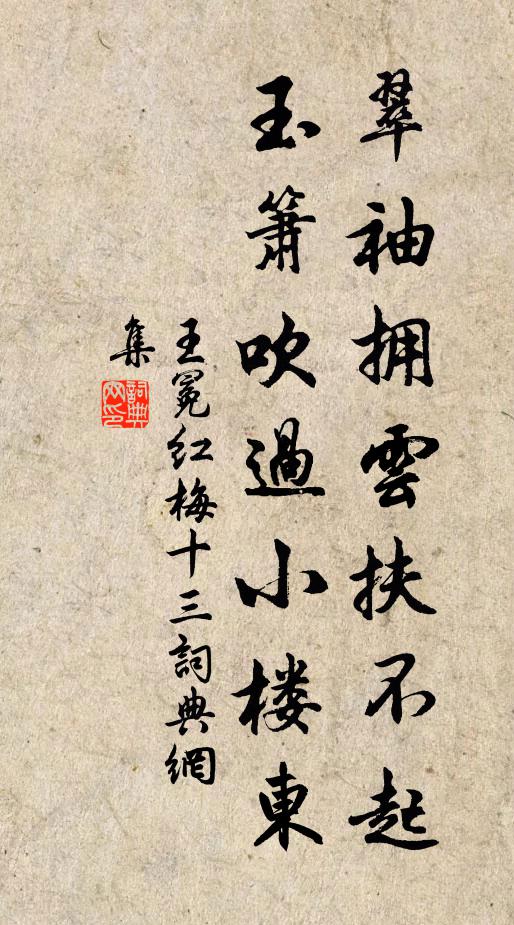 翠袖拥雲扶不起
玉簫吹過小楼東
王冕红梅十三詞典網
集
詞典网印